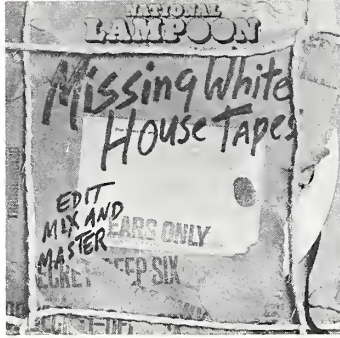 NATIONAL
LAMPOON
Missing White
House Tapes
EDIT
MIX AND
MASTER
EARS ONLY
DEEP SIX